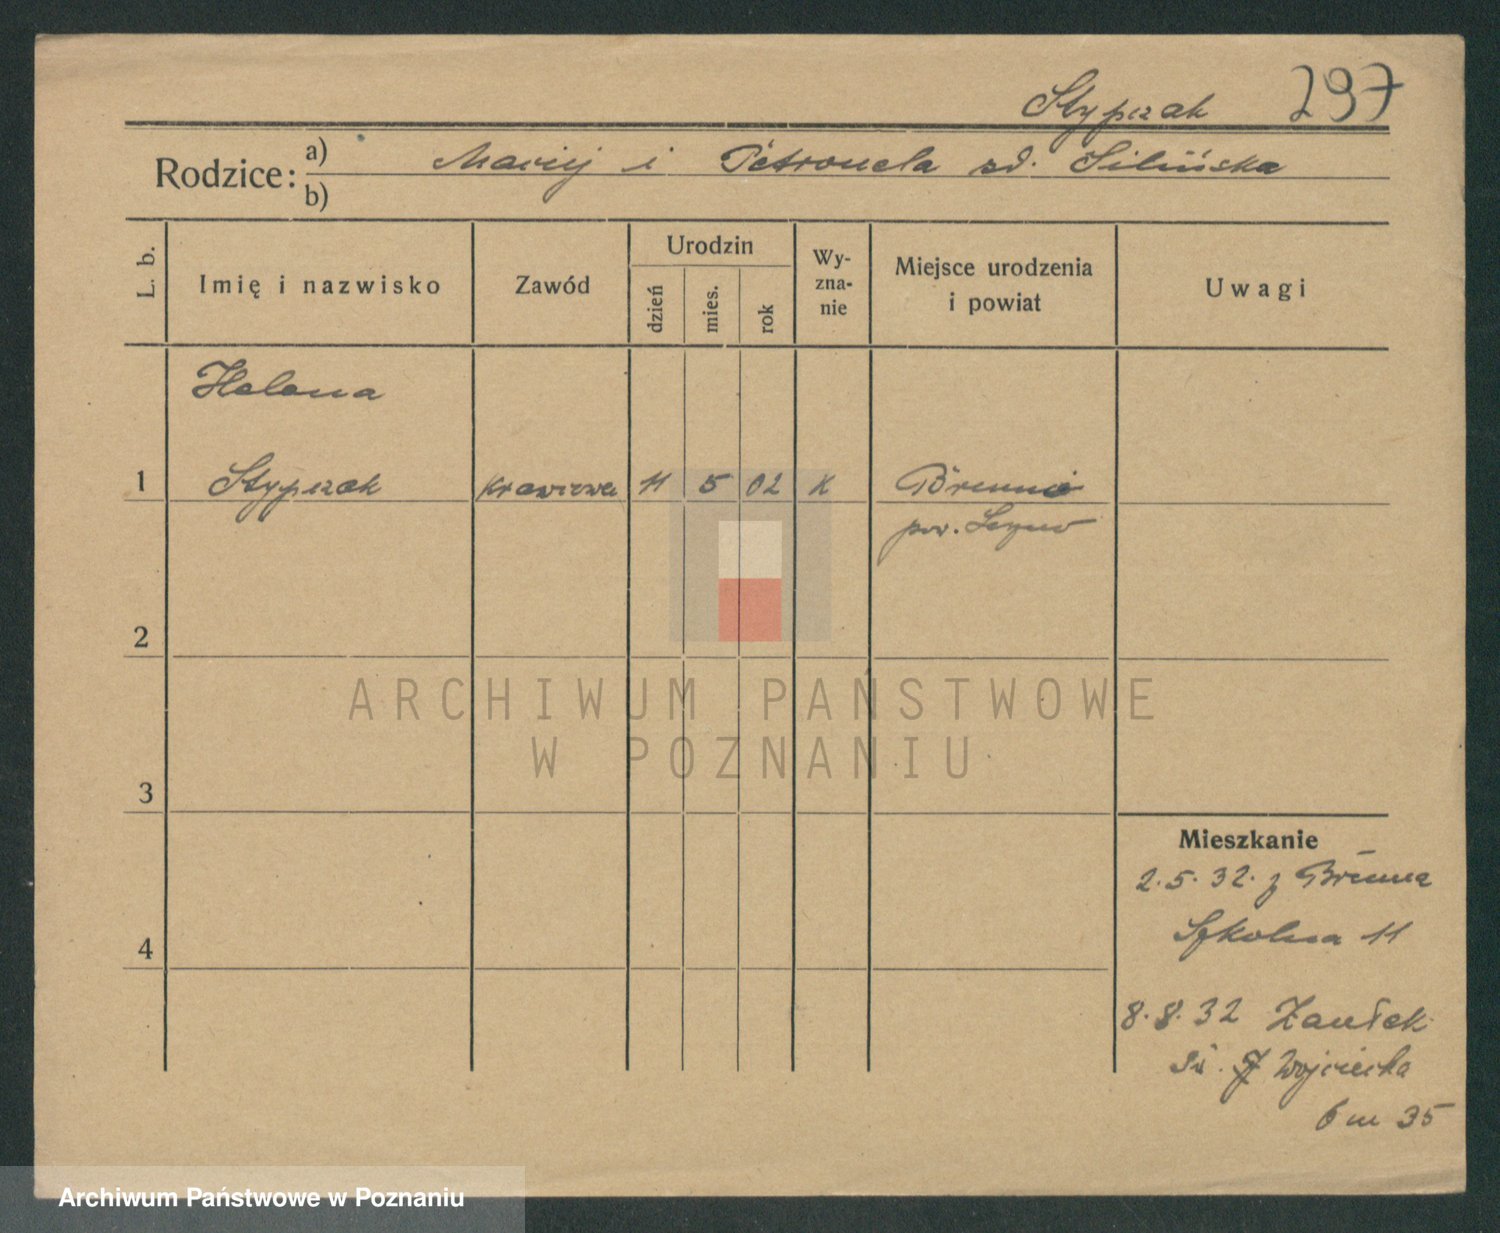 Stypczak 297
Rodzice: a) Maciej i Petronela zd. Silińska
b)
L. b. Imię i nazwisko Zawód Urodzin dzień mies. rok Wy-zna-nie Miejsce urodzenia i powiat Uwagi
Helena
1 Stypczak krawcowa 11 5 02 K Brenno
pow. Leszno
2
ARCHIWUM PAŃSTWOWE
W POZNANIU
3
Mieszkanie
2.5.32. z Brenna
Szkolna 11
4
8.8.32 Zaułek
Św. Wojciecha
6 m 35
Archiwum Państwowe w Poznaniu